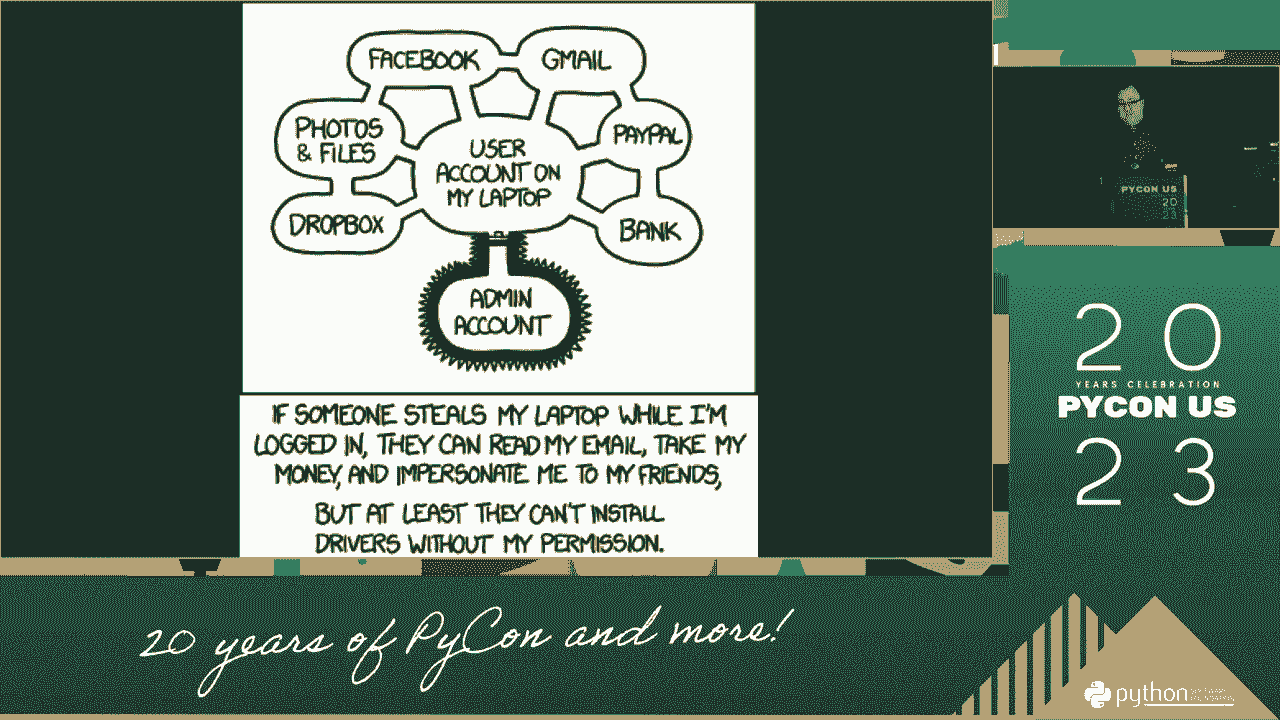 FACEBOOK
GMAIL
PHOTOS
& FILES
USER
ACCOUNT ON
MY LAPTOP
PAYPAL
DROPBOX
BANK
ADMIN
ACCOUNT
IF SOMEONE STEALS MY LAPTOP WHILE I'M
LOGGED IN, THEY CAN READ MY EMAIL, TAKE MY
MONEY, AND IMPERSONATE ME TO MY FRIENDS,
BUT AT LEAST THEY CAN'T INSTALL
DRIVERS WITHOUT MY PERMISSION.
PYCON US
20
23
20
YEARS CELEBRATION
PYCON US
23
20 years of PyCon and more!
python